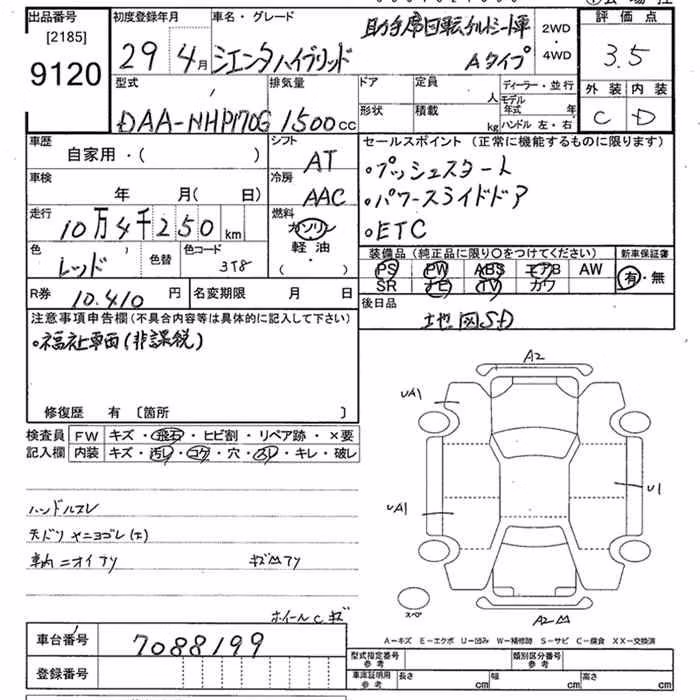 出品番号 初度登録年月 車名・グレード 助手席回転チルトシート車 2WD ・ 4WD 評価点
[2185]
9120 29年4月 シエンタハイブリッド Aタイプ 3.5
型式 排気量 ドア 定員 人 ディーラー・並行 外装 内装
DAA-NHP170G 1500cc 形状 積載 kg モデル年式 年 ハンドル 左・右 C D
車歴 自家用・( ) シフト AT セールスポイント (正常に機能するものに限ります)
車検 年 月( 日) 冷房 AAC ・プッシュスタート
・パワースライドドア
走行 10万4千250km 燃料 ガソリン ・ETC
軽油
・( )
色 レッド 色替 色コード 3T8 装備品 (純正品に限り○をつけてください) 新車保証書
PS PW ABS エアB AW 有・無
R券 10.410円 名変期限 月 日 SR ナビ TV カワ
注意事項申告欄(不具合内容等は具体的に記入して下さい) 後日品 地図SD
・福祉車両(非課税)
修復歴 有 〔箇所 〕
検査員 FW キズ・飛石・ヒビ割・リペア跡・×要
記入欄 内装 キズ・汚レ・コゲ・穴・スレ・キレ・破レ
A2
UA1
UA1
U1
ハンドルスレ
天ドリ ヤニヨゴレ(エ)
車内ニオイアリ
スペア
ホイールCキズ
A2
A-キズ E-エクボ U-凹み W-補修跡 S-サビ C-腐食 XX-交換済
車台番号 7088199
型式指定番号 参考 類別区分番号 参考
登録番号
車庫証明用 参考 長さ cm 幅 cm 高さ cm